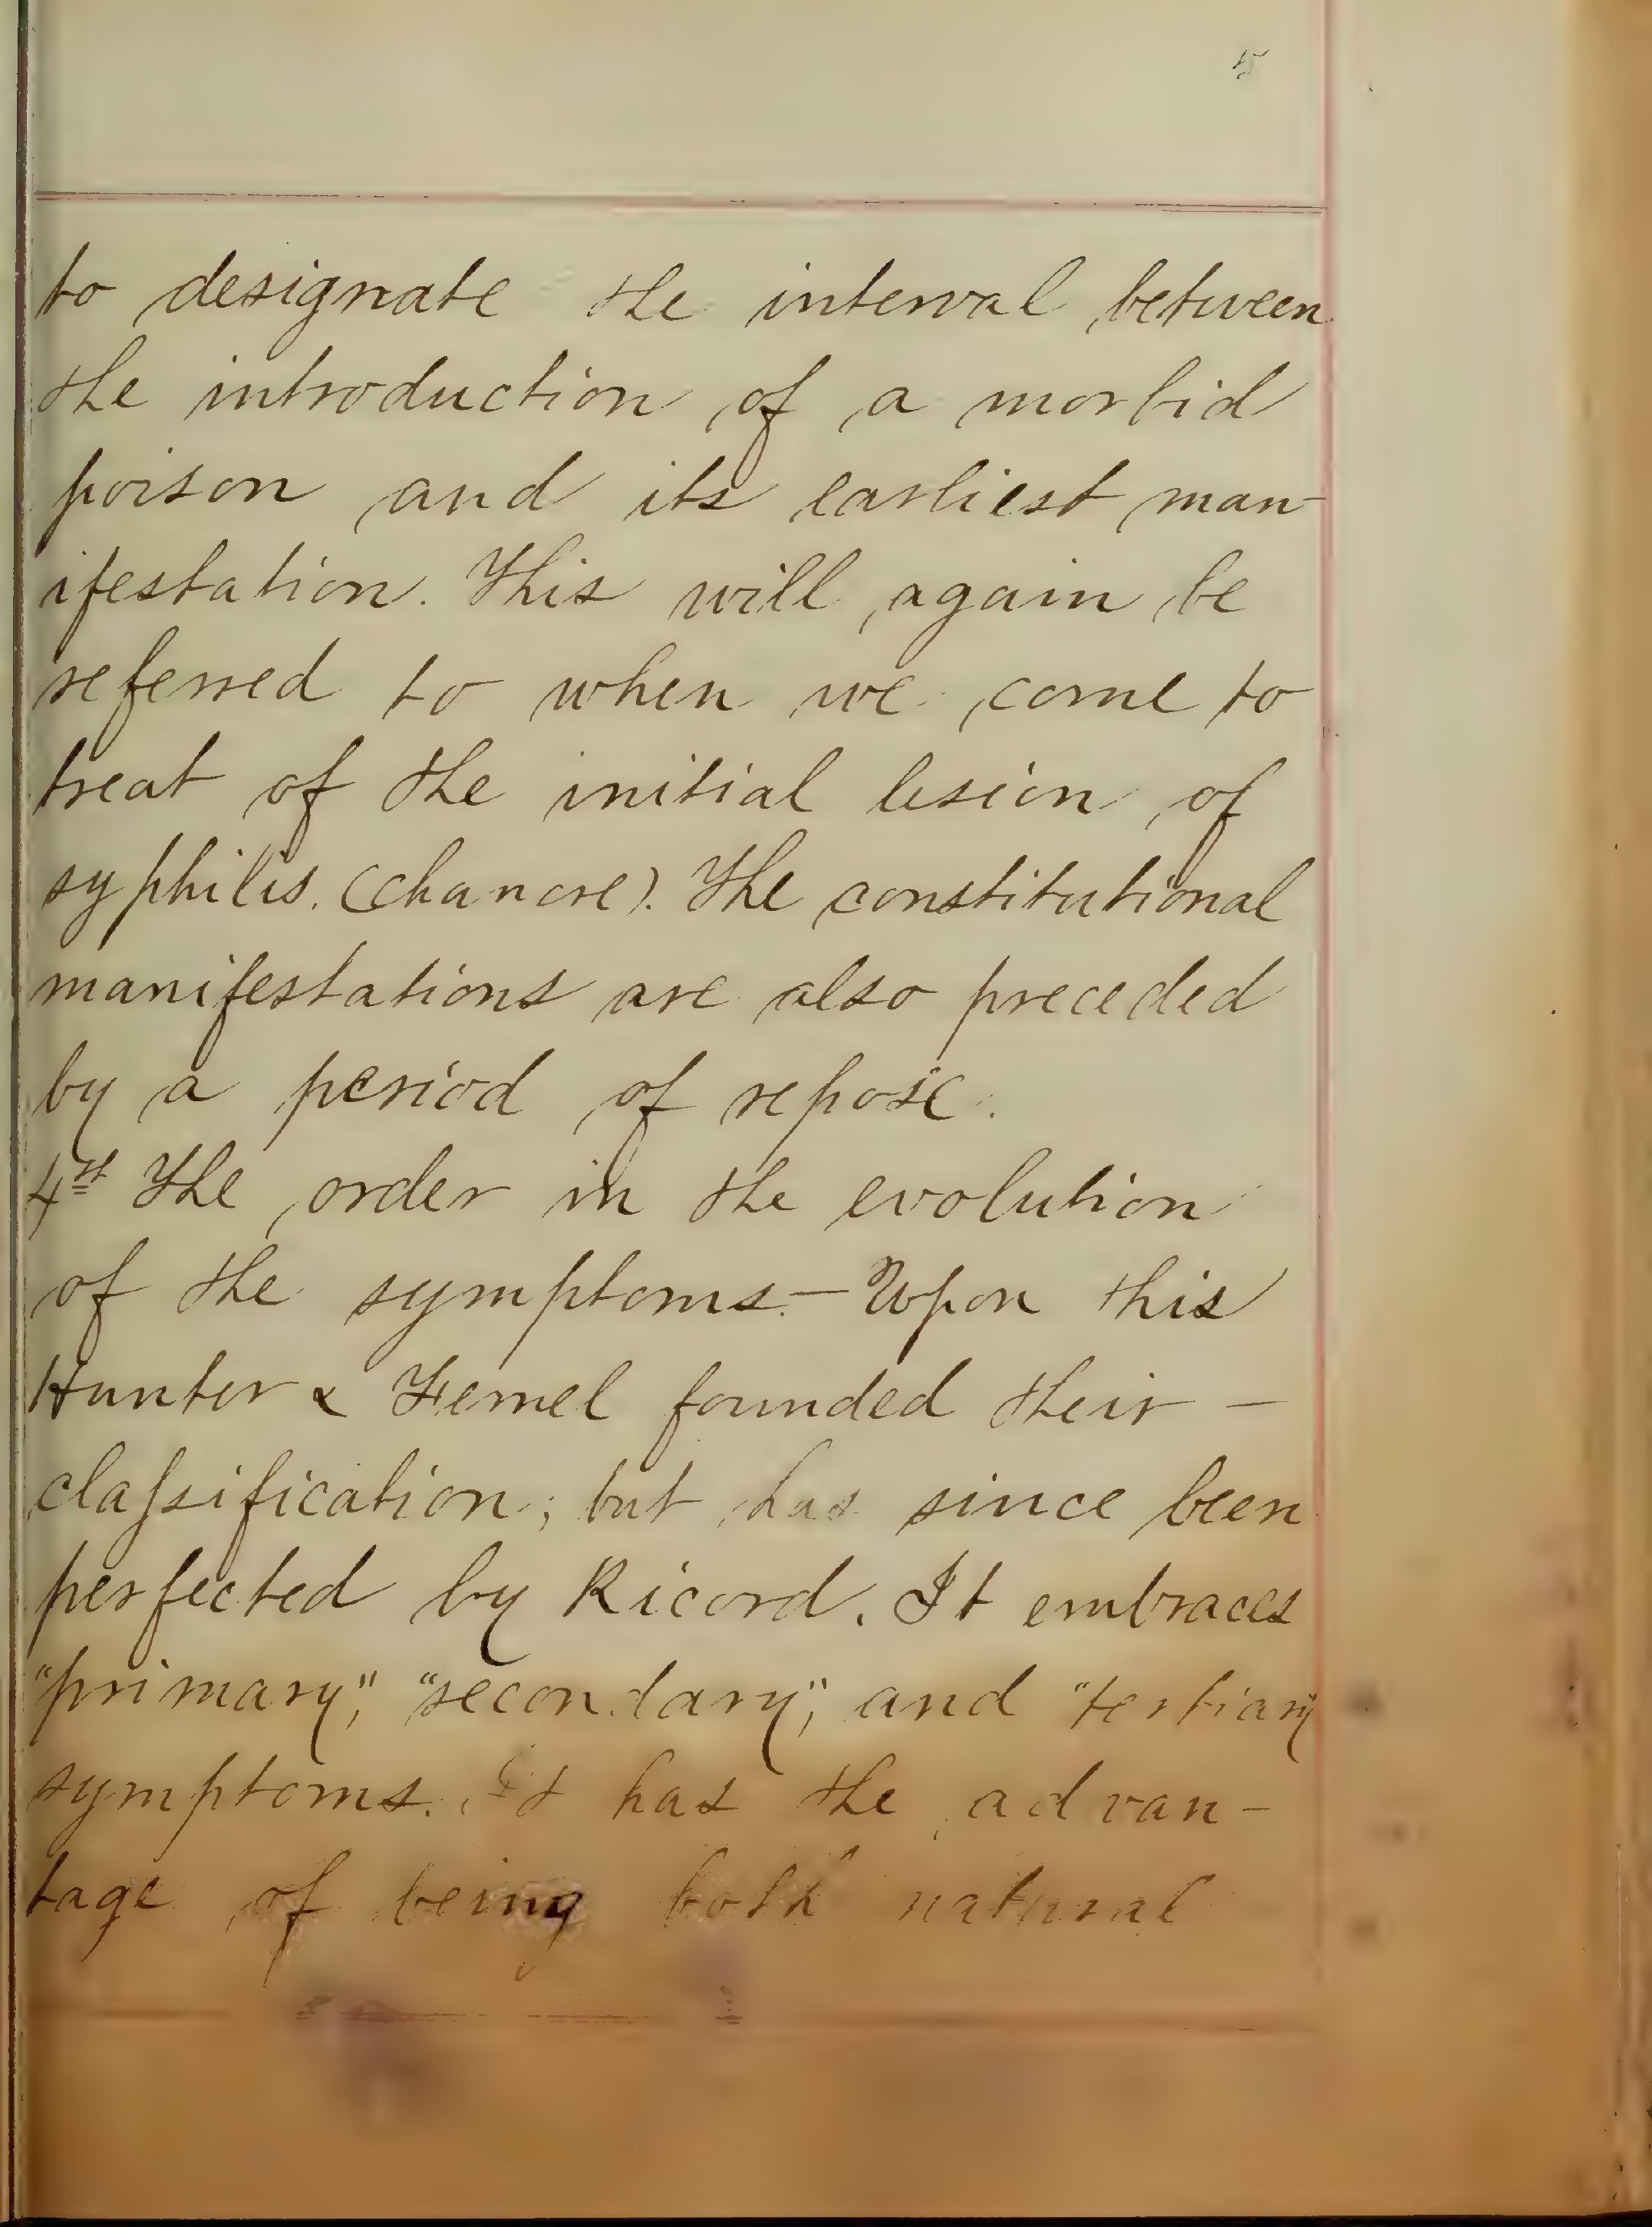 5
to designate the interval between
the introduction of a morbid
poison and its earliest man-
ifestation. This will again be
referred to when we come to
treat of the initial lesion of
syphilis. (chancre). The constitutional
manifestations are also preceded
by a period of repose.
4th The order in the evolution
of the symptoms.— Upon this
Hunter & Fernel founded their —
classification; but has since been
perfected by Ricord. It embraces
"primary", "secondary", and "tertiary"
symptoms. It has the advan-
tage of being both natural